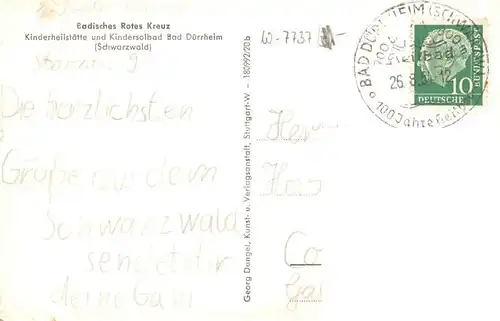 Badisches Rotes Kreuz
Kinderheilstätte und Kindersolbad Bad Dürrheim
(Schwarzwald)
Die herzlichsten
Grüße aus dem
Schwarzwald
sendet dir
deine Gabi
Georg Dangel, Kunst- u. Verlagsanstalt, Stuttgart-W - 180992/20b
W-7737
BAD DÜRRHEIM (SCHWA
26.8.
12
100 Jahre Heil
10
DEUTSCHE
Herr